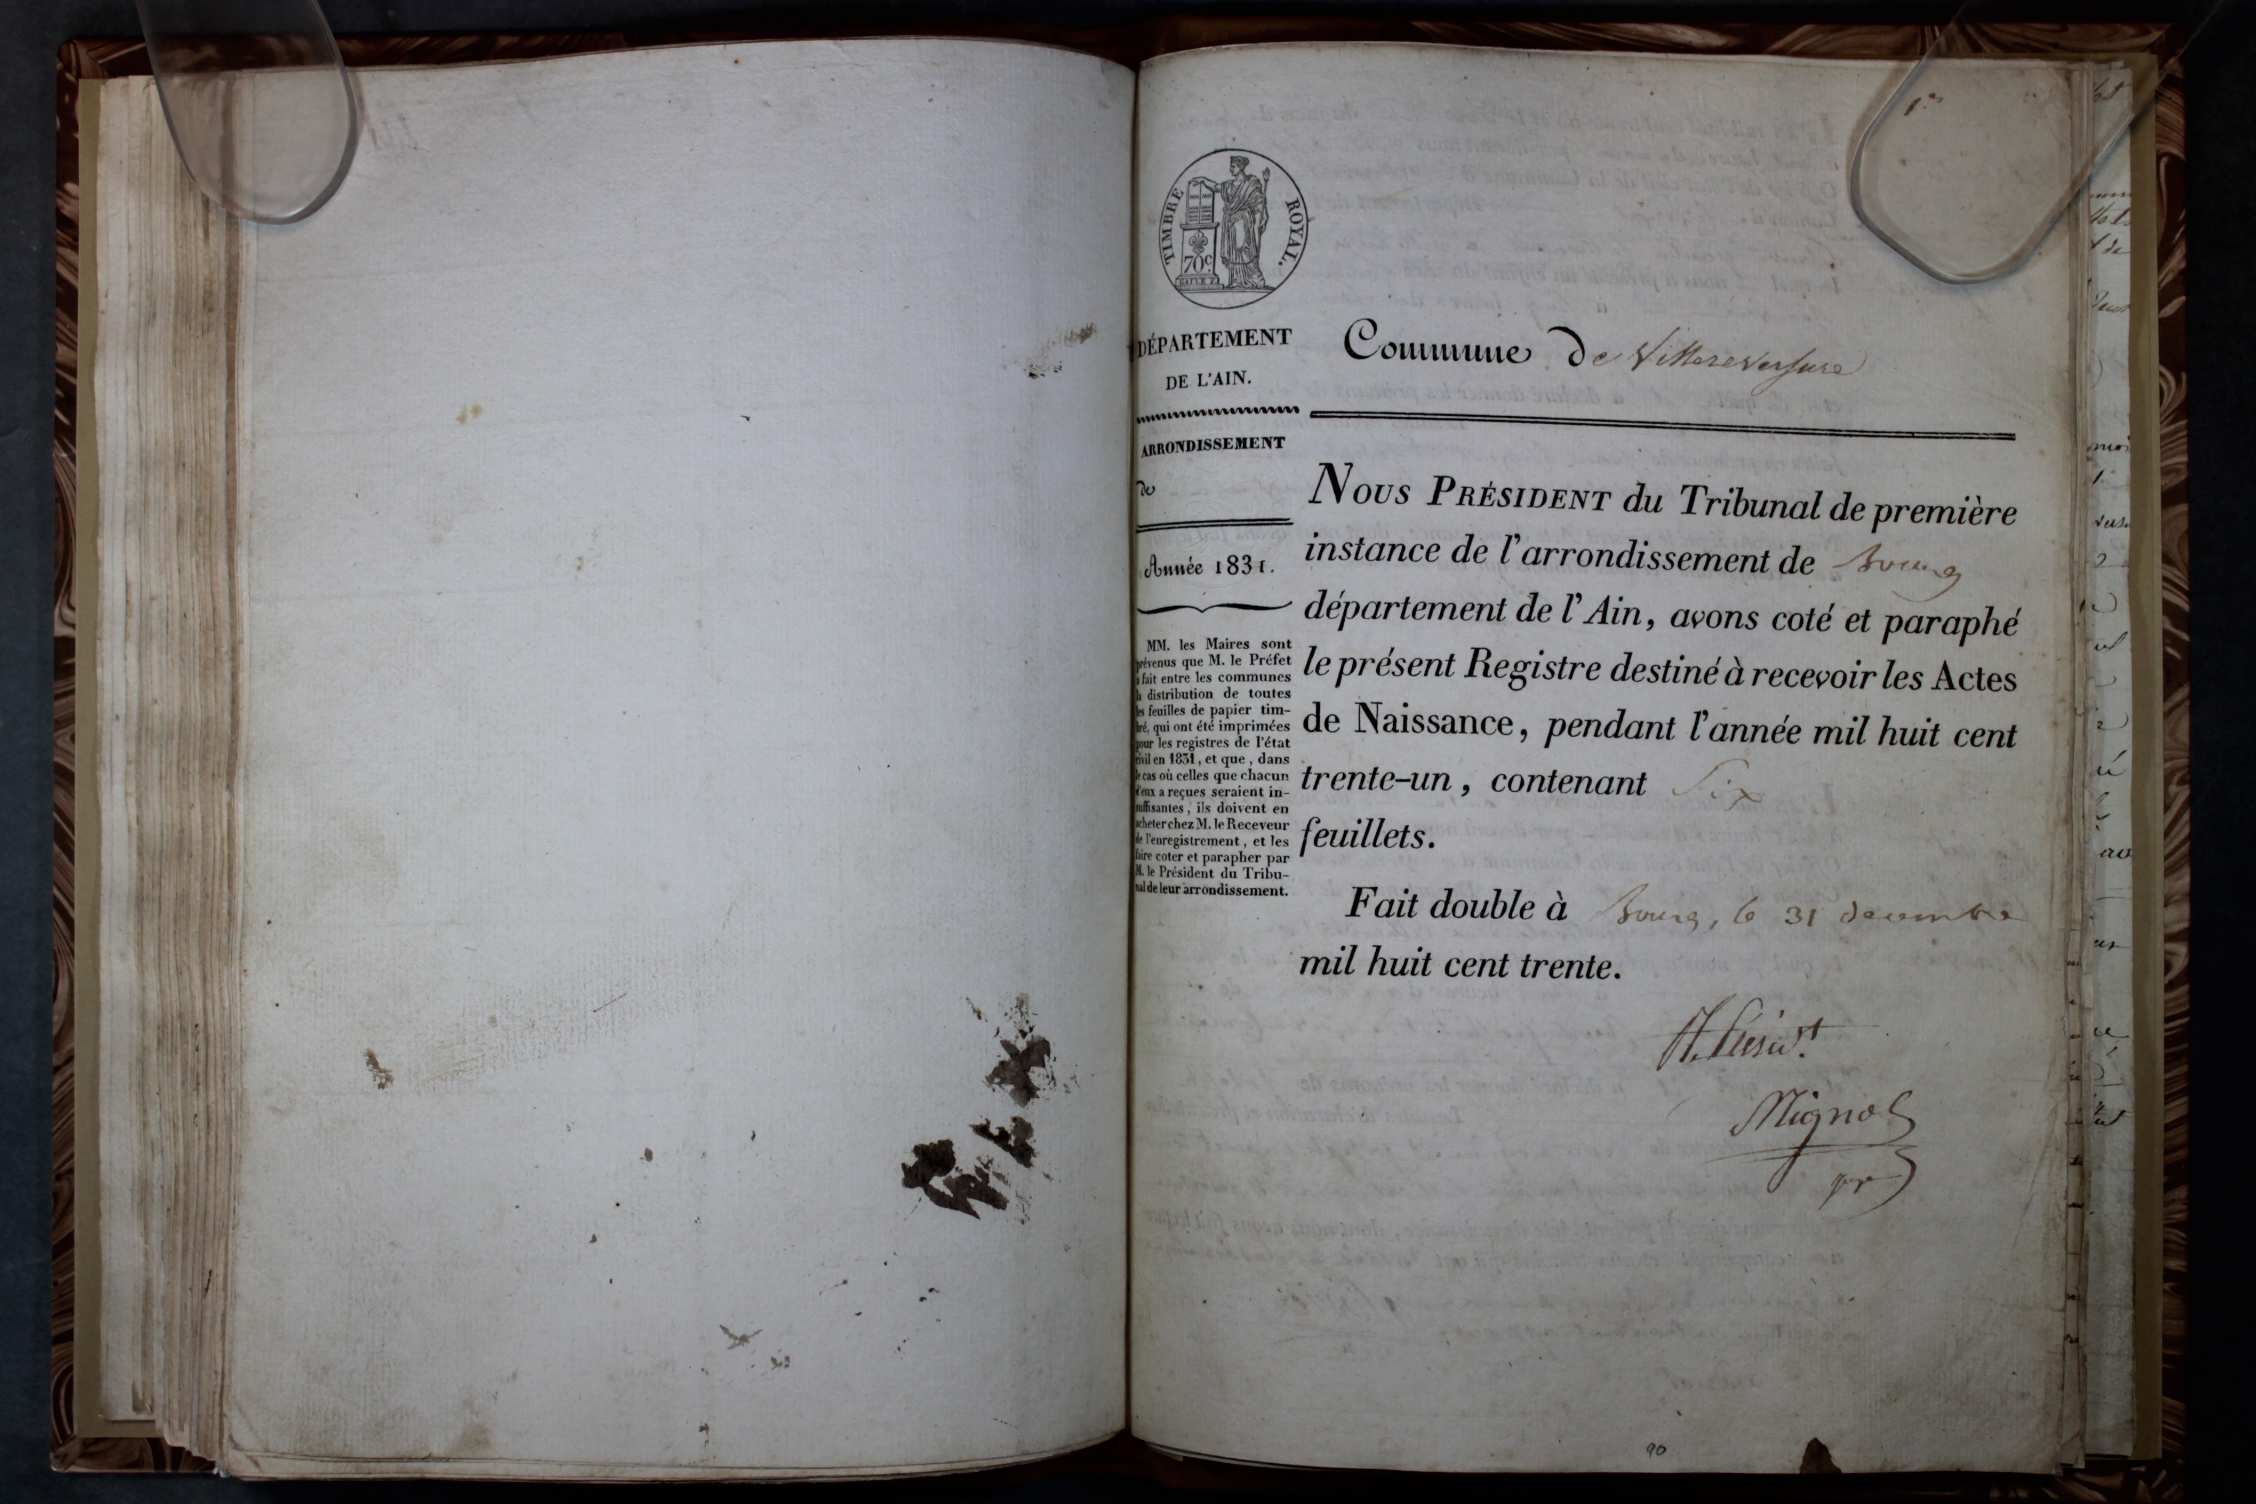 1er
TIMBRE ROYAL.
70c
DÉPARTEMENT
DE L'AIN.
Commune de Villereversure
ARRONDISSEMENT
de
Année 1831.
MM. les Maires sont
prévenus que M. le Préfet
a fait entre les communes
la distribution de toutes
les feuilles de papier tim-
bré, qui ont été imprimées
pour les registres de l'état
civil en 1831, et que, dans
le cas où celles que chacun
d'eux a reçues seraient in-
suffisantes, ils doivent en
acheter chez M. le Receveur
de l'enregistrement, et les
faire coter et parapher par
M. le Président du Tribu-
nal de leur arrondissement.
NOUS PRÉSIDENT du Tribunal de première
instance de l'arrondissement de Bourg
département de l'Ain, avons coté et paraphé
le présent Registre destiné à recevoir les Actes
de Naissance, pendant l'année mil huit cent
trente-un, contenant Six
feuillets.
Fait double à Bourg, le 31 decembre
mil huit cent trente.
Mignot
90